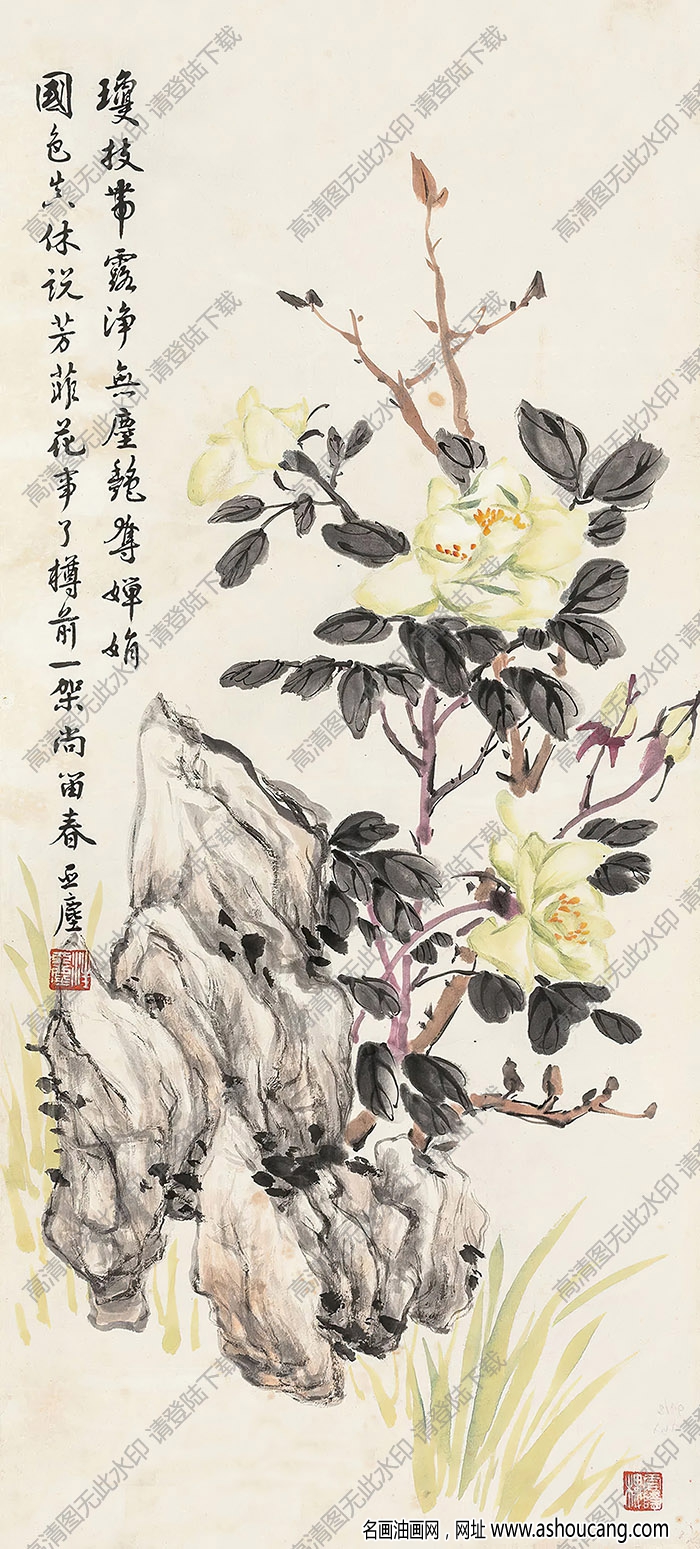 瓊枝帶露淨無塵艷奪嬋娟
國色真休說芳菲花事了樽前一架尚留春 亞塵
高清图无此水印 请登陆下载
名画油画网，网址 www.ashoucang.com